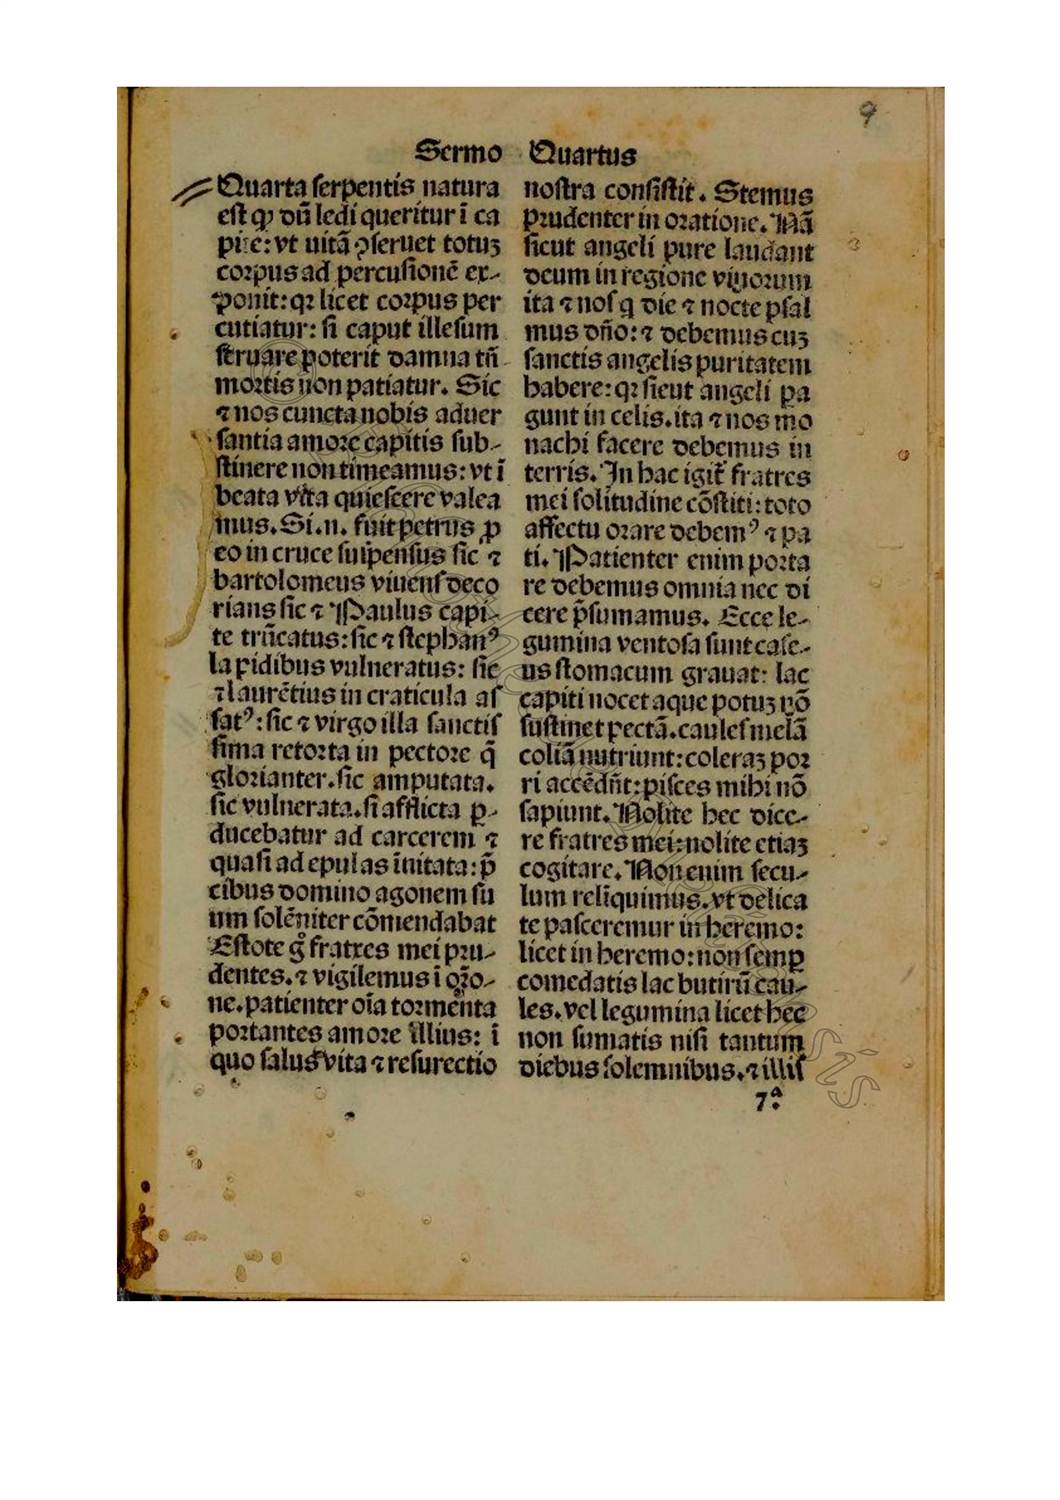 9
Sermo Quartus
Quarta serpentis natura
est qꝫ dū ledi queritur ī ca
pite: vt uitā ꝯseruet totuꝫ
corpus ad percusionē ex-
ponit: qꝛ licet corpus per
cutiatur: si caput illesum
seruare poterit damna tñ
mortis non patiatur. Sic
⁊ nos cuncta nobis aduer
santia amore capitis sub-
stinere non timeamus: vt ī
beata vita quiescere valea
mus. Si.n. fuit petrus ꝓ
eo in cruce suspensus sic ⁊
bartolomeus viuens deco
rians sic ⁊ Paulus capi-
te trūcatus: sic ⁊ stephanꝰ
lapidibus vulneratus: sic
⁊ laurētius in craticula as
satꝰ: sic ⁊ virgo illa sanctis
sima retorta in pectore q̄
glorianter. sic amputata.
sic vulnerata. si afflicta ꝑ-
ducebatur ad carcerem ⁊
quasi ad epulas īuitata: p̄
cibus domino agonem su
um solēniter cōmendabat
Estote gͦ fratres mei pru-
dentes. ⁊ vigilemus ī orō-
ne. patienter oīa tormēta
portantes amore illius: ī
quo salus vita ⁊ resurectio
nostra consistit. Stemus
prudenter in oratione. Nā
sicut angeli pure laudant
deum in regione viuorum
ita ⁊ nos q̄ die ⁊ nocte psal
mus dño: ⁊ debemus cuꝫ
sanctis angelis puritatem
habere: qꝛ sicut angeli ꝑa
gunt in celis. ita ⁊ nos mo
nachi facere debemus in
terris. In hac igit᷑ fratres
mei solitudine cōstiti: toto
affectu orare debemꝰ ⁊ pa
ti. Patienter enim porta
re debemus omnia nec di
cere p̄sumamus. Ecce le-
gumina ventosa sunt case-
us stomacum grauat: lac
capiti nocet aque potuꝫ nō
sustinet pectā. caules melā
coliā nutriunt: coleraꝫ por
ri accēdn̄t: pisces mihi nō
sapiunt. Nolite hec dice-
re fratres mei: nolite etiaꝫ
cogitare. Non enim secu-
lum reliquimus. vt delica
te pasceremur in heremo:
licet in heremo: non semꝑ
comedatis lac butirū cau-
les. vel legumina licet hec
non sumatis nisi tantum
diebus solemnibus. ⁊ illis
7ª.